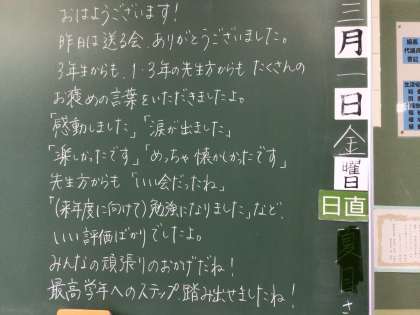 おはようございます!
昨日は送る会、ありがとうございました。
3年生からも、1・3年の先生方からもたくさんの
お褒めの言葉をいただきましたよ。
「感動しました」「涙が出ました」
「楽しかったです」「めっちゃ懐かしかったです」
先生方からも「いい会だったね」
「(来年度に向けて)勉強になりました」など、
いい評価ばかりでしたよ。
みんなの頑張りのおかげだね!
最高学年へのステップ、踏み出せましたね!
三月一日金曜日
日直